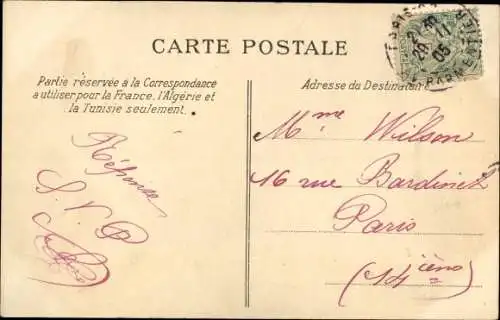 CARTE POSTALE
Partie réservée à la Correspondance
a utiliser pour la France, l'Algérie et
la Tunisie seulement.
Réponse
S. V. P
Adresse du Destinataire
Mme Wilson
16 rue Bardinet
Paris
(14 ièno)
2 40
29 11
05